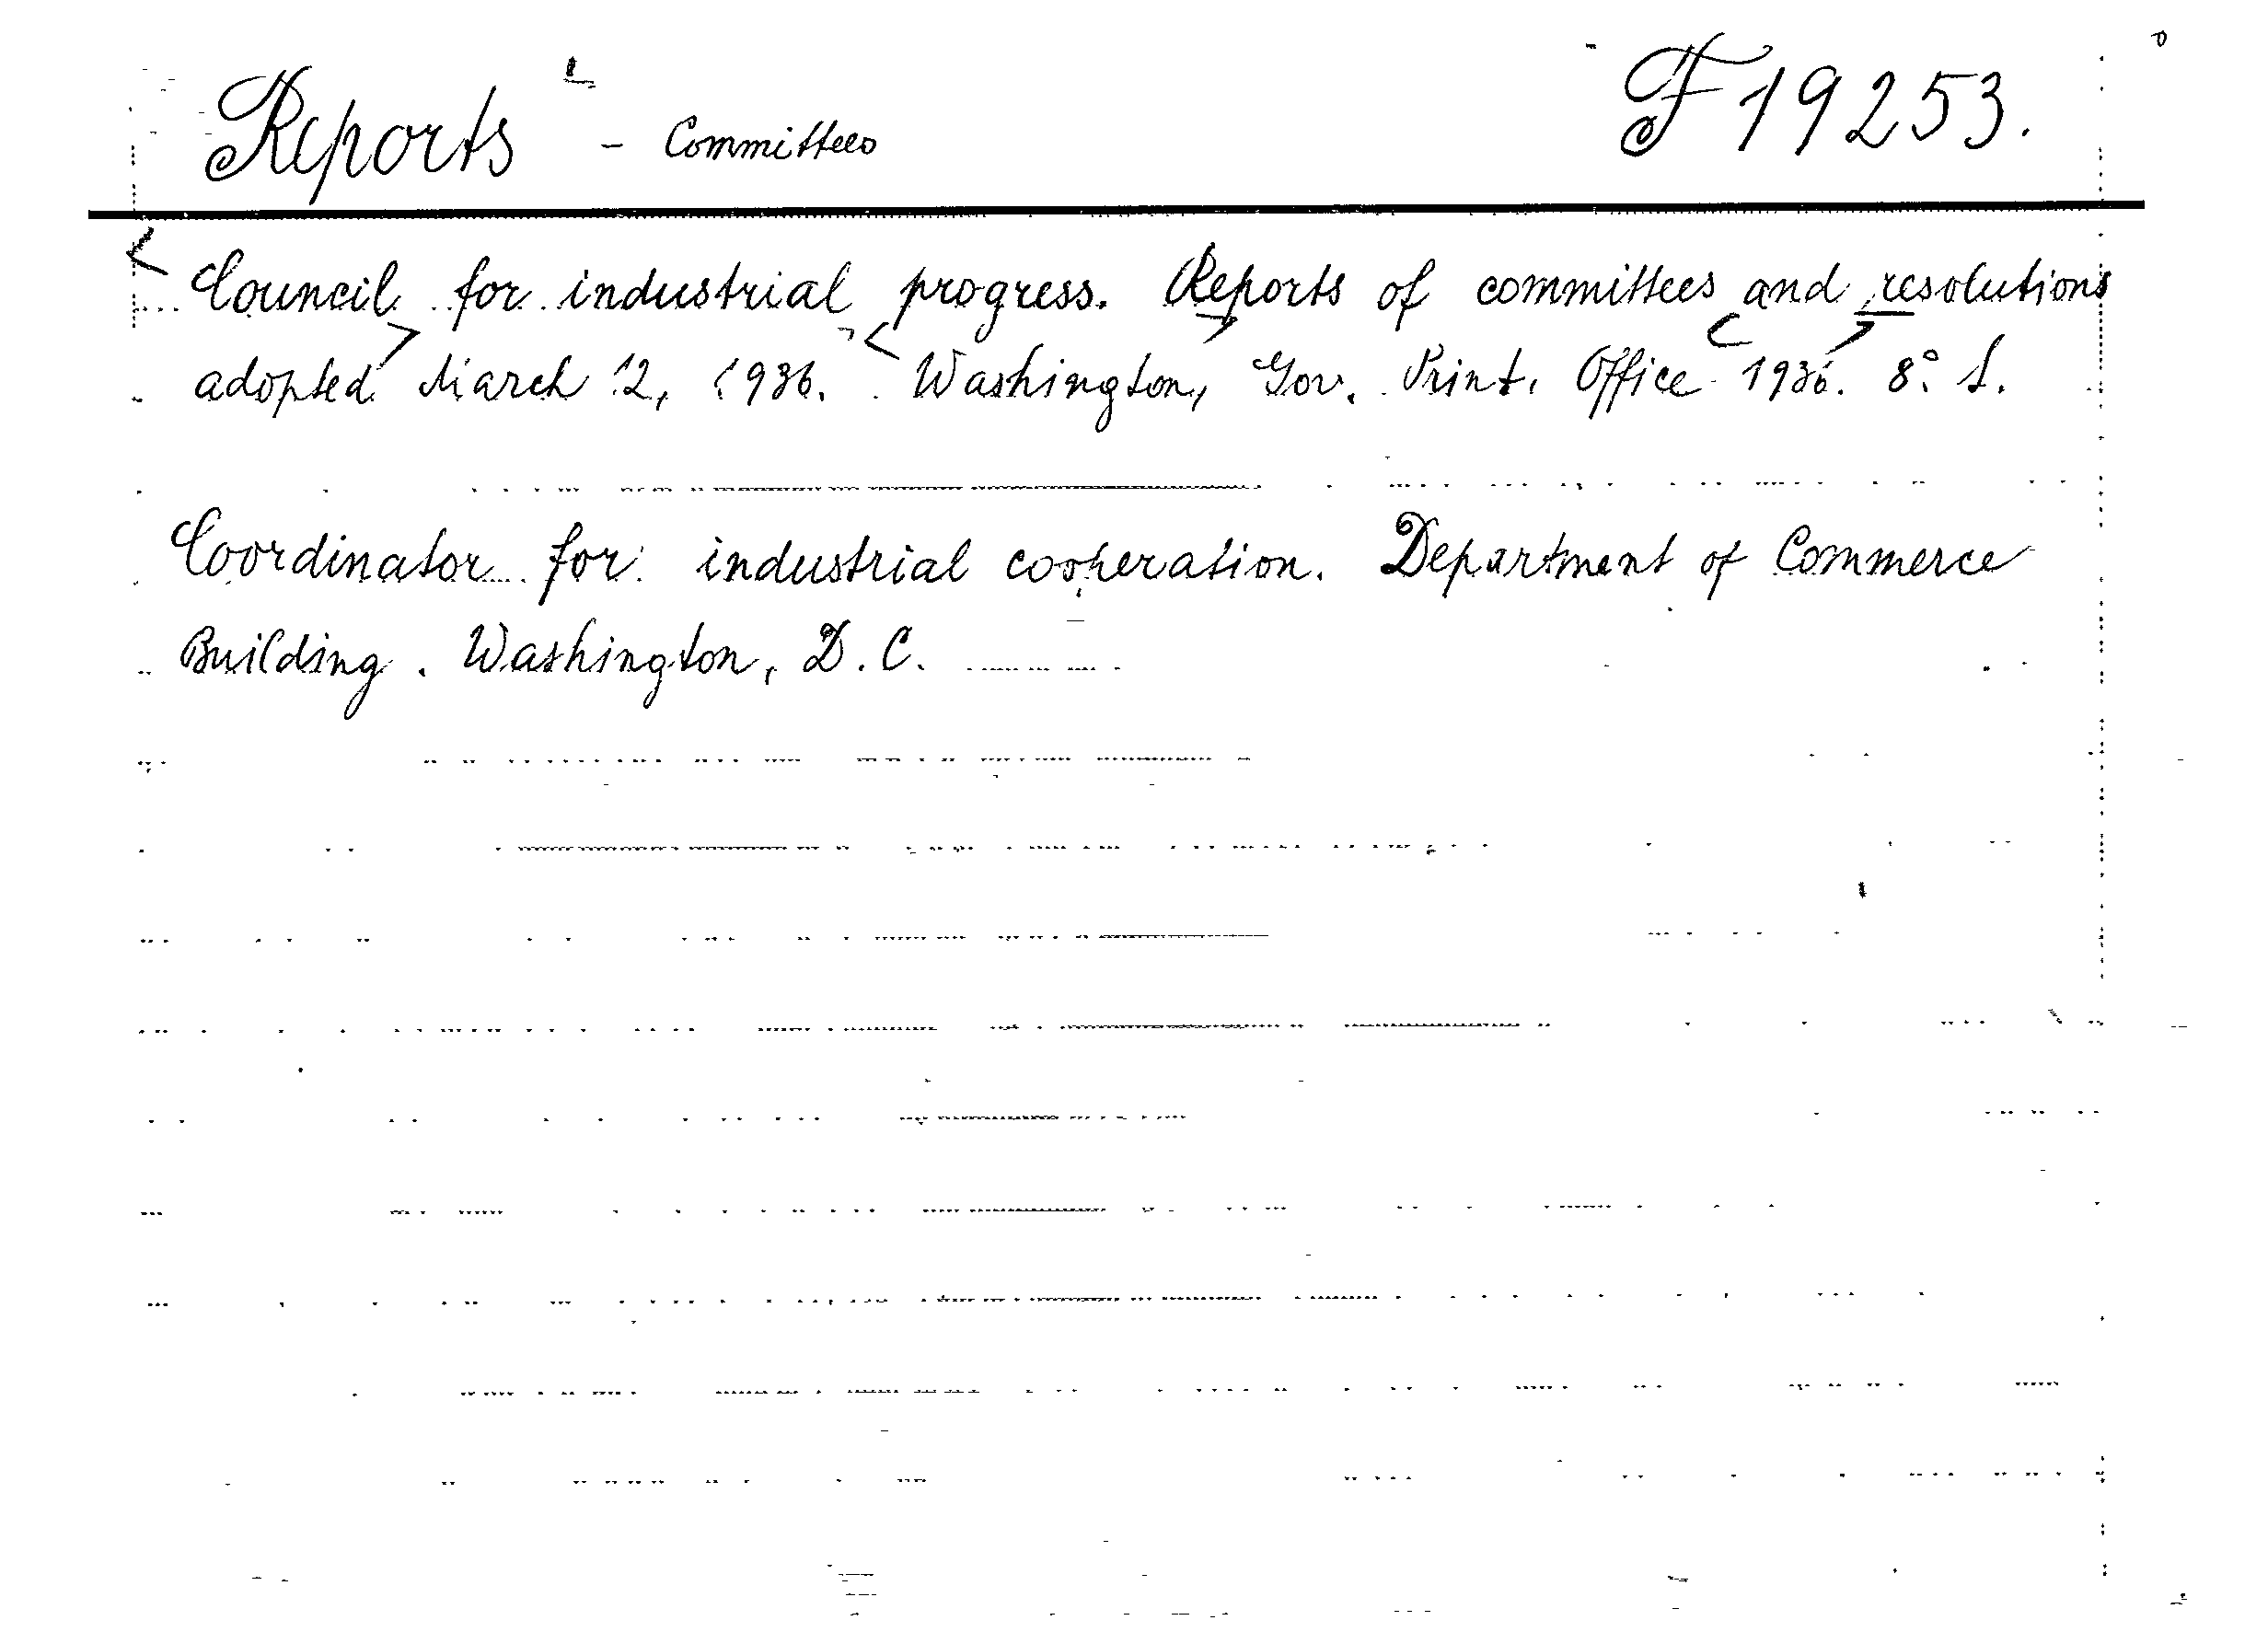 Reports - Committees F 19253.
Council for industrial progress. Reports of committees and resolutions
adopted March 12, 1936. Washington, Gov. Print. Office 1936. 8° 1.
Coordinator for industrial cooperation. Department of Commerce
Building. Washington, D.C.